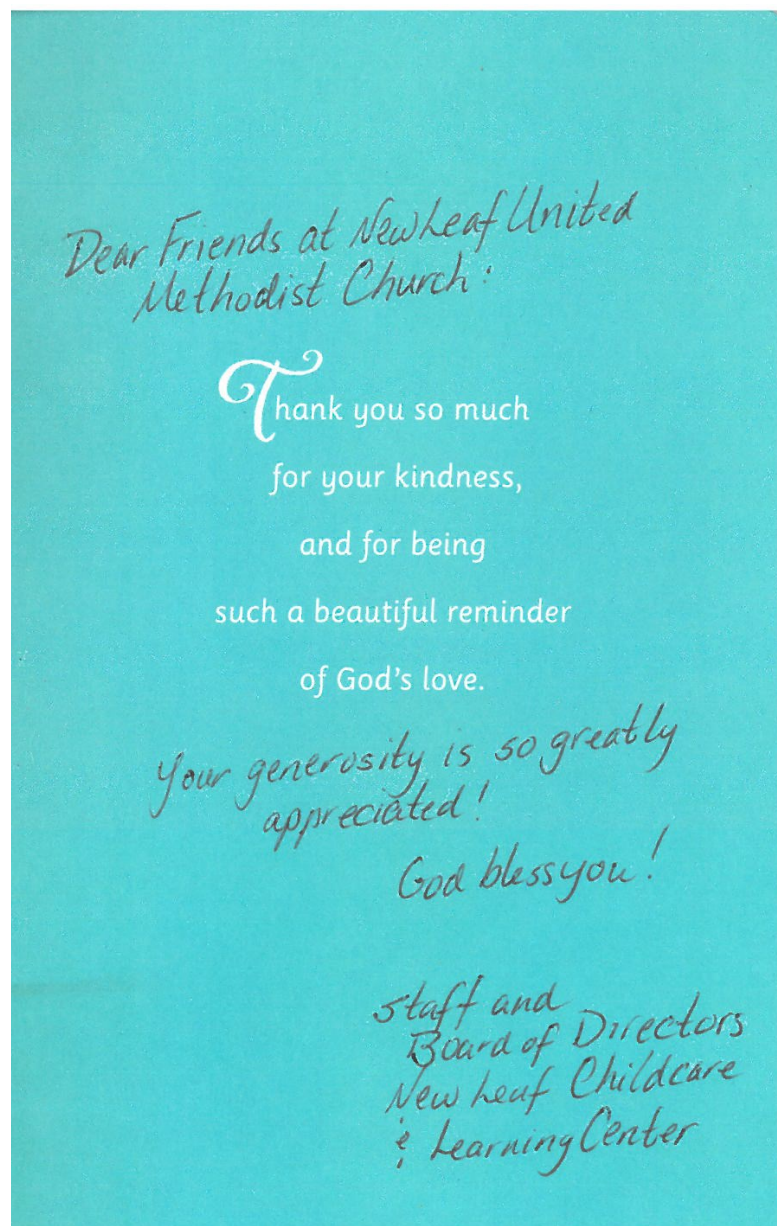 Dear Friends at New Leaf United
Methodist Church:
Thank you so much
for your kindness,
and for being
such a beautiful reminder
of God's love.
Your generosity is so greatly
appreciated!
God bless you!
Staff and
Board of Directors
New Leaf Childcare
& Learning Center